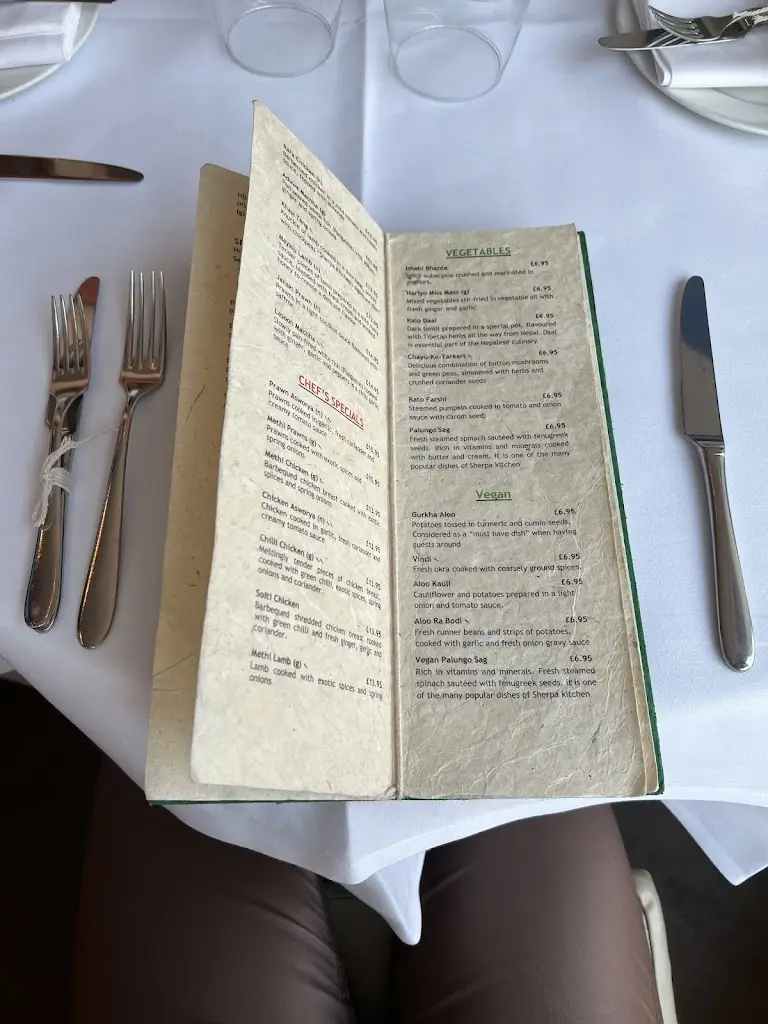 Barbequed chicken in a
sauce,
Khasi Tang
Knuckle of lamb
with chickpeas
Mayalu Lamb (n)
Tender pieces of lamb,
sauce, to create a delicate
honey to create a
saffron
Jahan Prawn (n)
Prawns in a light coconut sauce flavoured with
Lasoon Machha
Slowly pan-fried white fish
with ginger, garlic and peppers in a
sauce.
CHEF'S SPECIALS
Prawn Asworya (n)
Prawns cooked in garlic, fresh coriander and
creamy tomato sauce
Methi Prawns (g)
Prawns cooked with exotic spices and
spring onions
Methi Chicken (g)
Barbequed chicken breast cooked with exotic
spices and spring onions
Chicken Asworya (n) £13.95
Chicken cooked in garlic, fresh coriander and
creamy tomato sauce
Chilli Chicken (g) £13.95
Meltingly tender pieces of chicken breast,
cooked with green chilli, exotic spices, spring
onions and coriander.
Solti Chicken £13.95
Barbequed shredded chicken breast cooked
with green chilli and fresh ginger, garlic and
coriander.
Methi Lamb (g) £13.95
Lamb cooked with exotic spices and spring
onions
VEGETABLES
Bhanta £6.95
Spicy aubergine crushed and marinated in
yoghurt.
Hariyo Miss Mass (g) £6.95
Mixed vegetables stir-fried in vegetable oil with
fresh ginger and garlic
Kalo Daal £6.95
Dark lentil prepared in a special pot, flavoured
with Tibetan herbs all the way from Nepal. Daal
is essential part of the Nepalese culinary
Chayu-Ko-Tarkari £6.95
Delicious combination of button mushrooms
and green peas, simmered with herbs and
crushed coriander seeds
Rato Farshi £6.95
Steamed pumpkin cooked in tomato and onion
sauce with carom seed
Palungo Sag £6.95
Fresh steamed spinach sautéed with fenugreek
seeds. Rich in vitamins and minerals cooked
with butter and cream. It is one of the many
popular dishes of Sherpa kitchen
Vegan
Gurkha Aloo £6.95
Potatoes tossed in turmeric and cumin seeds.
Considered as a "must have dish" when having
guests around
Vindi £6.95
Fresh okra cooked with coarsely ground spices.
Aloo Kauli £6.95
Cauliflower and potatoes prepared in a light
onion and tomato sauce.
Aloo Ra Bodi £6.95
Fresh runner beans and strips of potatoes,
cooked with garlic and fresh onion gravy sauce
Vegan Palungo Sag £6.95
Rich in vitamins and minerals. Fresh steamed
spinach sautéed with fenugreek seeds. It is one
of the many popular dishes of Sherpa kitchen